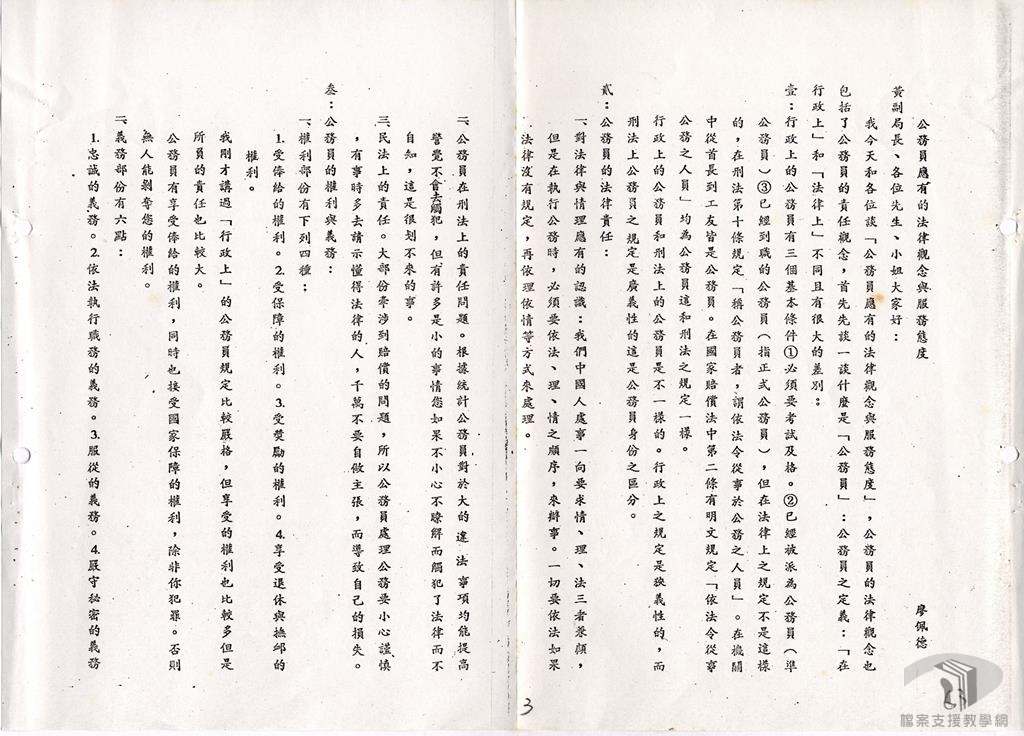 公務員應有的法律觀念與服務態度
廖佩德
黃副局長、各位先生、小姐大家好：
我今天和各位談「公務員應有的法律觀念與服務態度」，公務員的法律觀念也
包括了公務員的責任觀念，首先先談一談什麼是「公務員」：公務員之定義：「在
行政上」和「法律上」不同且有很大的差別：
壹：行政上的公務員有三個基本條件①必須要考試及格。②已經被派為公務員（準
公務員）③已經到職的公務員（指正式公務員），但在法律上之規定不是這樣
的，在刑法第十條規定「稱公務員者，謂依法令從事於公務之人員」。在機關
中從首長到工友皆是公務員。在國家賠償法中第二條有明文規定「依法令從事
公務之人員」均為公務員這和刑法之規定一樣。
行政上的公務員和刑法上的公務員是不一樣的。行政上之規定是狹義性的，而
刑法上公務員之規定是廣義性的這是公務員身份之區分。
貳：公務員的法律責任：
一、對法律與情理應有的認識：我們中國人處事一向要求情、理、法三者兼顧，
但是在執行公務時，必須要依法、理、情之順序，來辦事。一切要依法如果
法律沒有規定，再依理依情等方式來處理。
二、公務員在刑法上的責任問題。根據統計公務員對於大的違法事項均能提高
警覺不會去觸犯，但有許多是小的事情您如果不小心不瞭解而觸犯了法律而不
自知，這是很划不來的事。
三、民法上的責任。大部份牽涉到賠償的問題，所以公務員處理公務要小心謹慎
，有事時多去請示懂得法律的人，千萬不要自做主張，而導致自己的損失。
叁：公務員的權利與義務：
一、權利部份有下列四種：
1.受俸給的權利。2.受保障的權利。3.受獎勵的權利。4.享受退休與撫卹的
權利。
我剛才講過「行政上」的公務員規定比較嚴格，但享受的權利也比較多但是
所負的責任也比較大。
公務員有享受俸給的權利，同時也接受國家保障的權利，除非你犯罪。否則
無人能剝奪您的權利。
二、義務部份有六點：
1.忠誠的義務。2.依法執行職務的義務。3.服從的義務。4.嚴守秘密的義務
3
檔案支援教學網